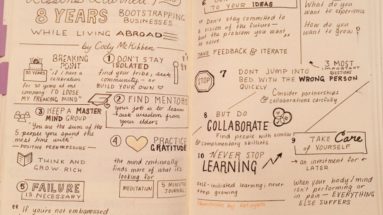 8 YEARS BOOTSTRAPPING
BUSINESSES
WHILE LIVING ABROAD
by Cody McKibben
BREAKING
POINT
10 YEARS
TO LOOSE
MY FREAKING MIND"
① DON'T STAY
ISOLATED
find your tribe, seek
community - or
BUILD YOUR OWN
② FIND MENTORS
your job is to learn
from
your elders
③ KEEP A MASTER
MIND GROUP
"You are the sum of the
5 people you spend the
most time with"
④ PRACTICE
GRATITUDE
THINK AND
GROW RICH
the mind continually
finds more of what its
looking for
MEDITATION
5 MINUTE
JOURNAL
⑤ FAILURE
IS NECESSARY
"if you're not embarrassed
6
TO YOUR IDEAS
Don't stay committed to
a vision of the future -
but the problem you want
to solve
TAKE FEEDBACK & ITERATE
What do you
want?
How do you
want to grow?
3 MOST
QUESTIONS
STOP
7 DON'T JUMP INTO
BED WITH THE WRONG PERSON
QUICKLY
Consider partnerships
& collaborations carefully
8 BUT DO
COLLABORATE
Find people with similar &
complimentary skillsets
9 TAKE Care
OF YOURSELF
an investment for
LATER
When your body/mind
isn't performing or
in pain - EVERYTHING
ELSE SUFFERS
10 NEVER STOP
LEARNING
self-initiated learning; never
stop growing